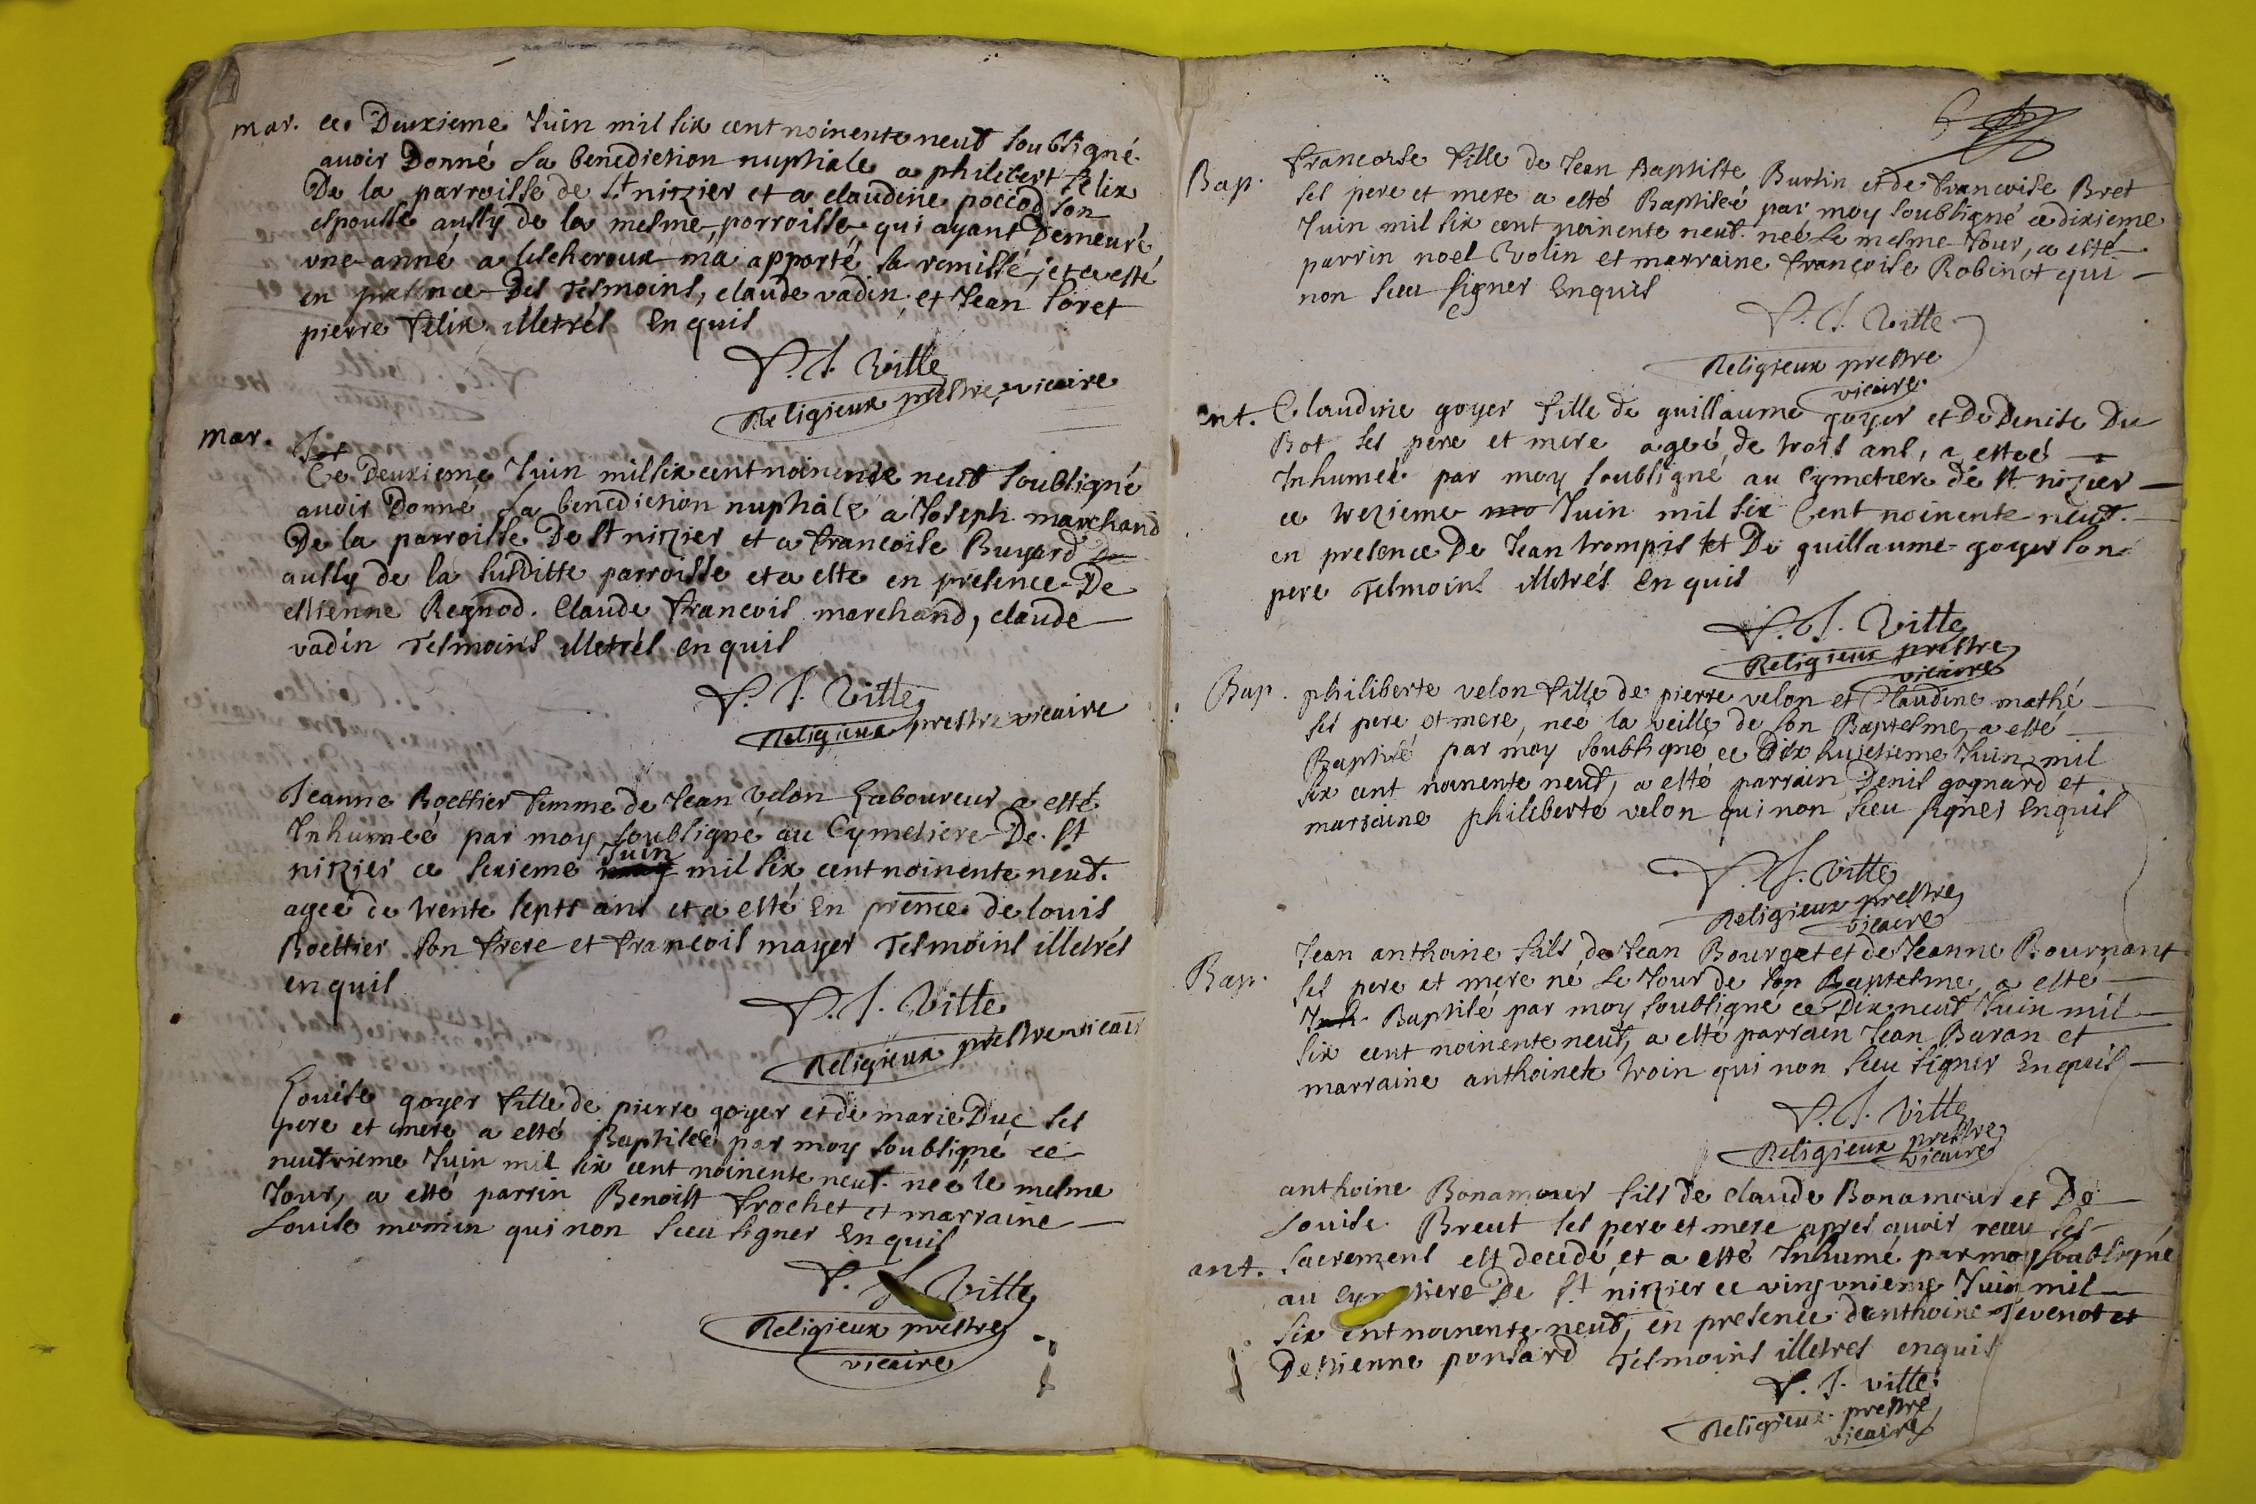 mar. ce Deuxieme Juin mil six cent noinente neuf soubsigné
avoir Donné La benediction nuptiale a philibert felix
De la parroisse de St nizier et a claudine poccod son
espousse aussy de la mesme parroisse qui ayant Demeuré
une anné a lescheroux ma apporté sa remisse, et a esté
en presence Des Tesmoins, claude vadin et Jean soret
pierre felix illetrés Enquis
P. J. Ville
Religieux prestre vicaire
mar. Ce Deuxieme Juin mil six cent noinente neuf soubsigné
avoir Donné La benediction nuptiale a Joseph marchand
De la parroisse De St nizier et a francoise Buyard
aussy de la susditte parroisse et a este en presence De
estienne Regnod. Claude francois marchand, claude
vadin Tesmoins illetrés enquis
P. J. Ville
Religieux prestre vicaire
Jeanne Roettier femme de Jean velon Laboureur a esté
Inhumeé par moy soubsigné au Cymetiere De St
nizier ce sixieme Juin mil six cent noinente neuf.
ageé de trente septs ans et a esté En prence de louis
Roettier son frere et francois mayer Tesmoins illetrés
enquis
P. J. Ville
Religieux prestre vicair
Louise goyer fille de pierre goyer et de marie Duc ses
pere et mere a esté Baptiseé par moy soubsigné ce
neufvieme Juin mil six cent noinente neuf. neé le mesme
Jour, a esté parrin Benoist frochet et marraine
Louise momin qui non sceu signer Enquis
P. J. Ville
Religieux prestre
vicaire
Bap. francoise fille de Jean Baptiste Burtin et de francoise Bret
ses pere et mere a esté Baptiseé par moy soubsigné ce dixieme
Juin mil six cent noinente neuf. neé Le mesme Jour, a esté
parrin noel Volin et marraine francoise Robinot qui
non sceu signer Enquis
P. J. Ville
Religieux prestre
vicaire
ent. Claudine goyer fille de guillaume goyer et De Denise Du
Bot ses pere et mere ageé de trois ans, a esteé
Inhumeé par moy soubsigné au Cymetiere de St nizier
ce trezieme Juin mil six Cent noinente neuf.
en presence De Jean trompis et De guillaume goyer son
pere Tesmoins illetrés Enquis
P. J. Ville
Religieux prestre
vicaire
Bap. philiberte velon fille de pierre velon et Claudine mathé
ses pere et mere, neé la veille de son Baptesme, a esté
Baptisé par moy soubsigné ce dix huictieme Juin mil
six cent noinente neuf, a esté parrain Denis gognard et
marraine philiberte velon qui non sceu signer Enquis
P. J. Ville
Religieux prestre
vicaire
Bap. Jean anthoine fils de Jean Bourget et de Jeanne Bournant
ses pere et mere né Le Jour de son Baptesme, a esté
Baptisé par moy soubsigné ce Dix neuf Juin mil
six cent noinente neuf, a esté parrain Jean Baran et
marraine anthoinete troin qui non sceu signer Enquis
P. J. Ville
Religieux prestre
vicaire
anthoine Bonamour fils de claude Bonamour et De
Louise Breut ses pere et mere apres avoir receu ses
ant. sacrements est decedé et a esté Inhumé par moy soubsigné
au Cymetiere De St nizier ce vingt unieme Juin mil
six cent noinente neuf, en presence danthoine Tevenot et
Destienne ponsard Tesmoins illetrés enquis
P. J. Ville
Religieux prestre
vicaire